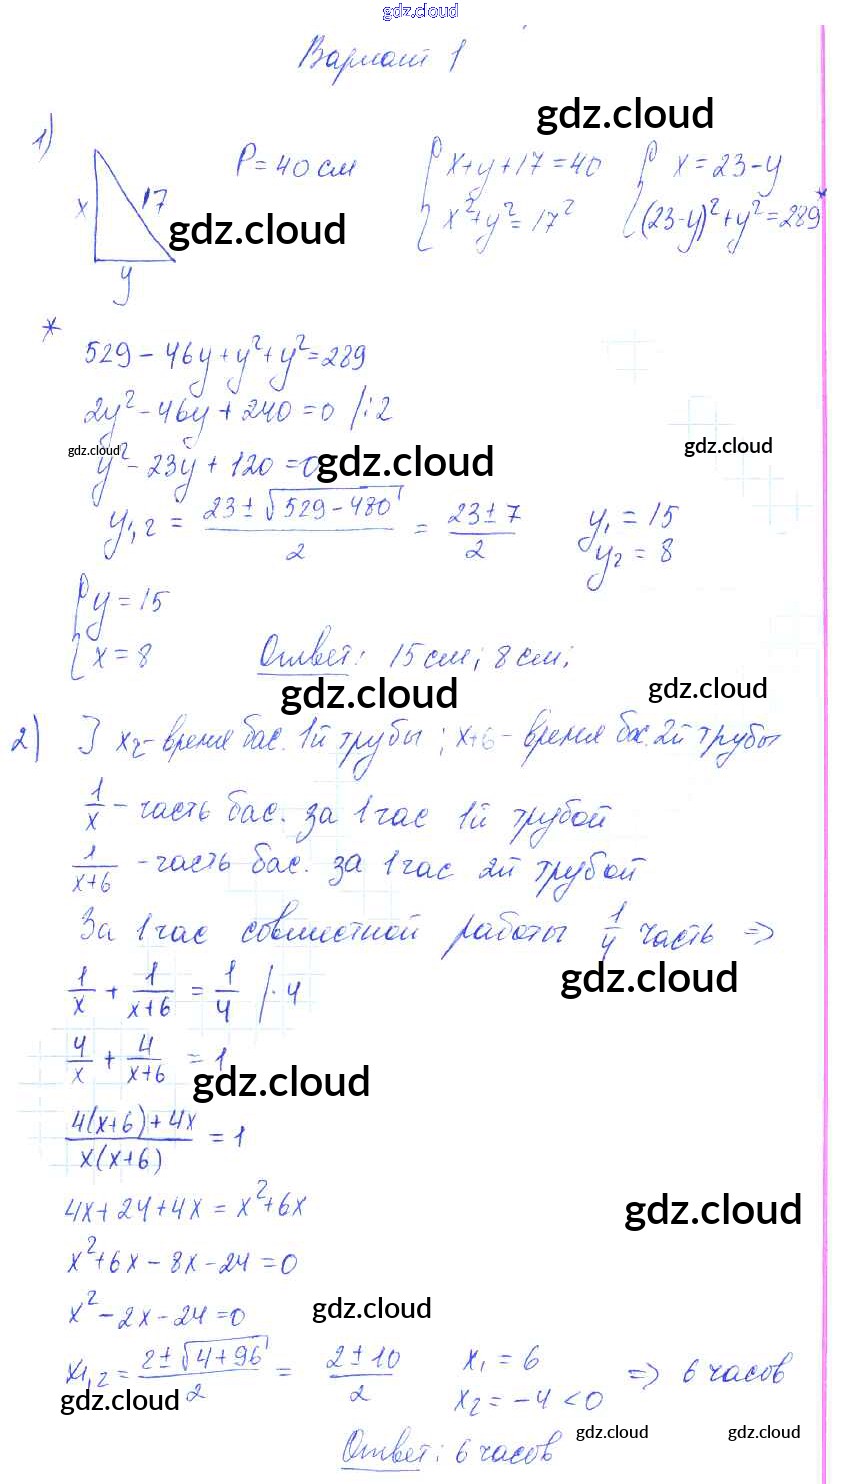 gdz.cloud
Вариант 1
gdz.cloud
1)
P = 40 см
x + y + 17 = 40
x = 23 - y
x 17
gdz.cloud
x² + y² = 17²
(23-y)² + y² = 289 *
y
*
529 - 46y + y² + y² = 289
2y² - 46y + 240 = 0 /:2
gdz.cloud
gdz.cloud
y² - 23y + 120 = 0
gdz.cloud
y1,2 = (23 ± √(529 - 480))/2 = (23 ± 7)/2
y₁ = 15
y₂ = 8
y = 15
x = 8
Ответ: 15 см; 8 см;
gdz.cloud
gdz.cloud
2) J x ч - время бас. 1й трубы; x+6 - время бас. 2й трубы
1/x - часть бас. за 1 час 1й трубой
1/(x+6) - часть бас. за 1 час 2й трубой
За 1 час совместной работы 1/4 часть =>
gdz.cloud
1/x + 1/(x+6) = 1/4 /·4
4/x + 4/(x+6) = 1
gdz.cloud
(4(x+6) + 4x)/(x(x+6)) = 1
4x + 24 + 4x = x² + 6x
gdz.cloud
x² + 6x - 8x - 24 = 0
x² - 2x - 24 = 0
gdz.cloud
x1,2 = (2 ± √(4 + 96))/2 = (2 ± 10)/2
x₁ = 6
x₂ = -4 < 0
=> 6 часов
gdz.cloud
Ответ: 6 часов
gdz.cloud
gdz.cloud